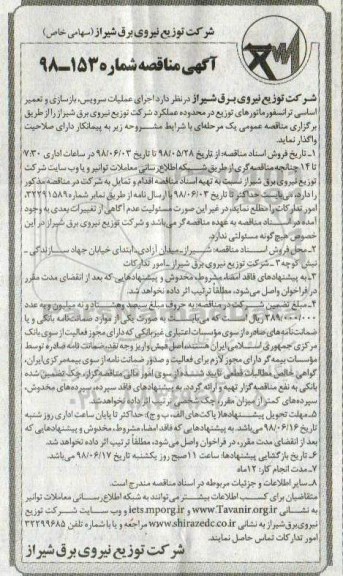 شرکت توزیع نیروی برق شیراز (سهامی خاص)
آگهی مناقصه شماره ۱۵۳-۹۸
شرکت توزیع نیروی برق شیراز در نظر دارد اجرای عملیات سرویس، بازسازی و تعمیر
اساسی ترانسفورماتورهای توزیع در محدوده عملکرد شرکت توزیع نیروی برق شیراز را از طریق
برگزاری مناقصه عمومی یک مرحله‌ای با شرایط مشروحه زیر به پیمانکار دارای صلاحیت
واگذار نماید.
۱ـ تاریخ فروش اسناد مناقصه: از تاریخ ۹۸/۰۵/۲۸ تا تاریخ ۹۸/۰۶/۰۳ در ساعات اداری ۷/۳۰
تا ۱۴ چنانچه مناقصه‌گری از طریق شبکه اطلاع رسانی معاملات توانیر و یا وب سایت شرکت
توزیع نیروی برق شیراز نسبت به تهیه اسناد مناقصه اقدام و تمایل به شرکت در مناقصه مذکور
را دارد، می‌بایست حداکثر تا تاریخ ۹۸/۰۶/۰۳ با ارسال نامه از طریق نمابر شماره ۳۲۲۹۱۵۸۹
امور تدارکات را مطلع نمایند، در غیر این صورت مسئولیت عدم آگاهی از تغییرات بعدی به وجود
آمده در اسناد مناقصه به عهده مناقصه گر می‌باشد و شرکت توزیع نیروی برق شیراز در این
خصوص هیچ‌گونه مسئولتی ندارد.
۲ـ محل فروش اسناد مناقصه: شیراز ـ میدان آزادی، ابتدای خیابان جهاد سازندگی ـ
نبش کوچه ۳ ـ شرکت توزیع نیروی برق شیراز ـ امور تدارکات
۳ـ به پیشنهادهای فاقد امضا، مشروط، مخدوش و پیشنهادهایی که بعد از انقضای مدت مقرر
در فراخوان واصل می‌شود، مطلقاً ترتیب اثر داده نخواهد شد.
۴ـ مبلغ تضمین شرکت در مناقصه: به حروف مبلغ سیصد و هشتاد و نه میلیون و به عدد
۳۸۹/۰۰۰/۰۰۰ ریال است که می‌بایست به صورت یکی از موارد ضمانت‌نامه بانکی و یا
ضمانت‌نامه‌های صادره از سوی مؤسسات اعتباری غیربانکی که دارای مجوز فعالیت از سوی بانک
مرکزی جمهوری اسلامی ایران هستند، اصل فیش واریز وجه نقد، ضمانت نامه صادره توسط
مؤسسات بیمه گر دارای مجوز لازم برای فعالیت و صدور ضمانت نامه از سوی بیمه مرکزی ایران،
گواهی خالص مطالبات قطعی تایید شده از سوی امور مالی مناقصه گزار، چک تضمین شده
بانکی به نفع مناقصه‌گزار تهیه و ارائه گردد. به پیشنهادهای فاقد سپرده، سپرده‌های مخدوش،
سپرده‌های کمتر از میزان مقرر، چک شخصی ترتیب اثر داده نخواهد شد.
۵ـ مهلت تحویل پیشنهادها: (پاکت‌های الف، ب و ج) حداکثر تا پایان ساعت اداری روز شنبه
به تاریخ ۹۸/۰۶/۱۶ می‌باشد. به پیشنهادهایی که فاقد امضا، مشروط، مخدوش و پیشنهادهایی که
بعد از انقضای مدت مقرر، در فراخوان واصل می‌شود، مطلقاً ترتیب اثر داده نخواهد شد.
۶ـ تاریخ بازگشایی پیشنهادها: ساعت ۱۱ صبح روز یکشنبه تاریخ ۹۸/۰۶/۱۷ می‌باشد.
۷ـ مدت انجام کار: ۱۲ ماه
۸ـ سایر اطلاعات و جزئیات مربوطه در اسناد مناقصه مندرج است.
متقاضیان برای کسب اطلاعات بیشتر می‌توانند به شبکه اطلاع‌رسانی معاملات توانیر
به نشانی www.Tavanir.org.ir و iets.mporg.ir و وب سایت شرکت توزیع
نیروی برق شیراز به نشانی www.shirazedc.co.ir مراجعه و یا با شماره تلفن ۳۲۲۹۹۶۸۵
امور تدارکات تماس حاصل نمایند.
شرکت توزیع نیروی برق شیراز